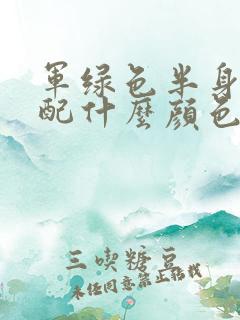 軍绿色半身
配什麼顔色
三喫糖豆
未经同意禁止搬我